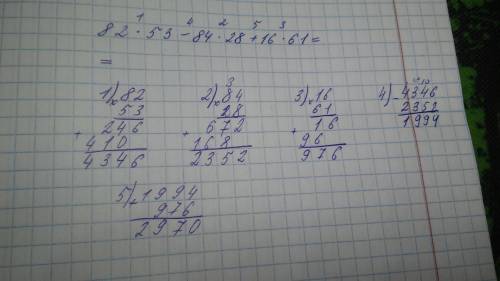 1 4 2 5 3
82 · 53 - 84 · 28 + 16 · 61 =
=
1) × 82
53
+ 246
410
4346
2) 3
× 84
28
+ 672
168
2352
3) × 16
61
+ 16
96
976
4) - 4346
2352
1994
5) + 1994
976
2970